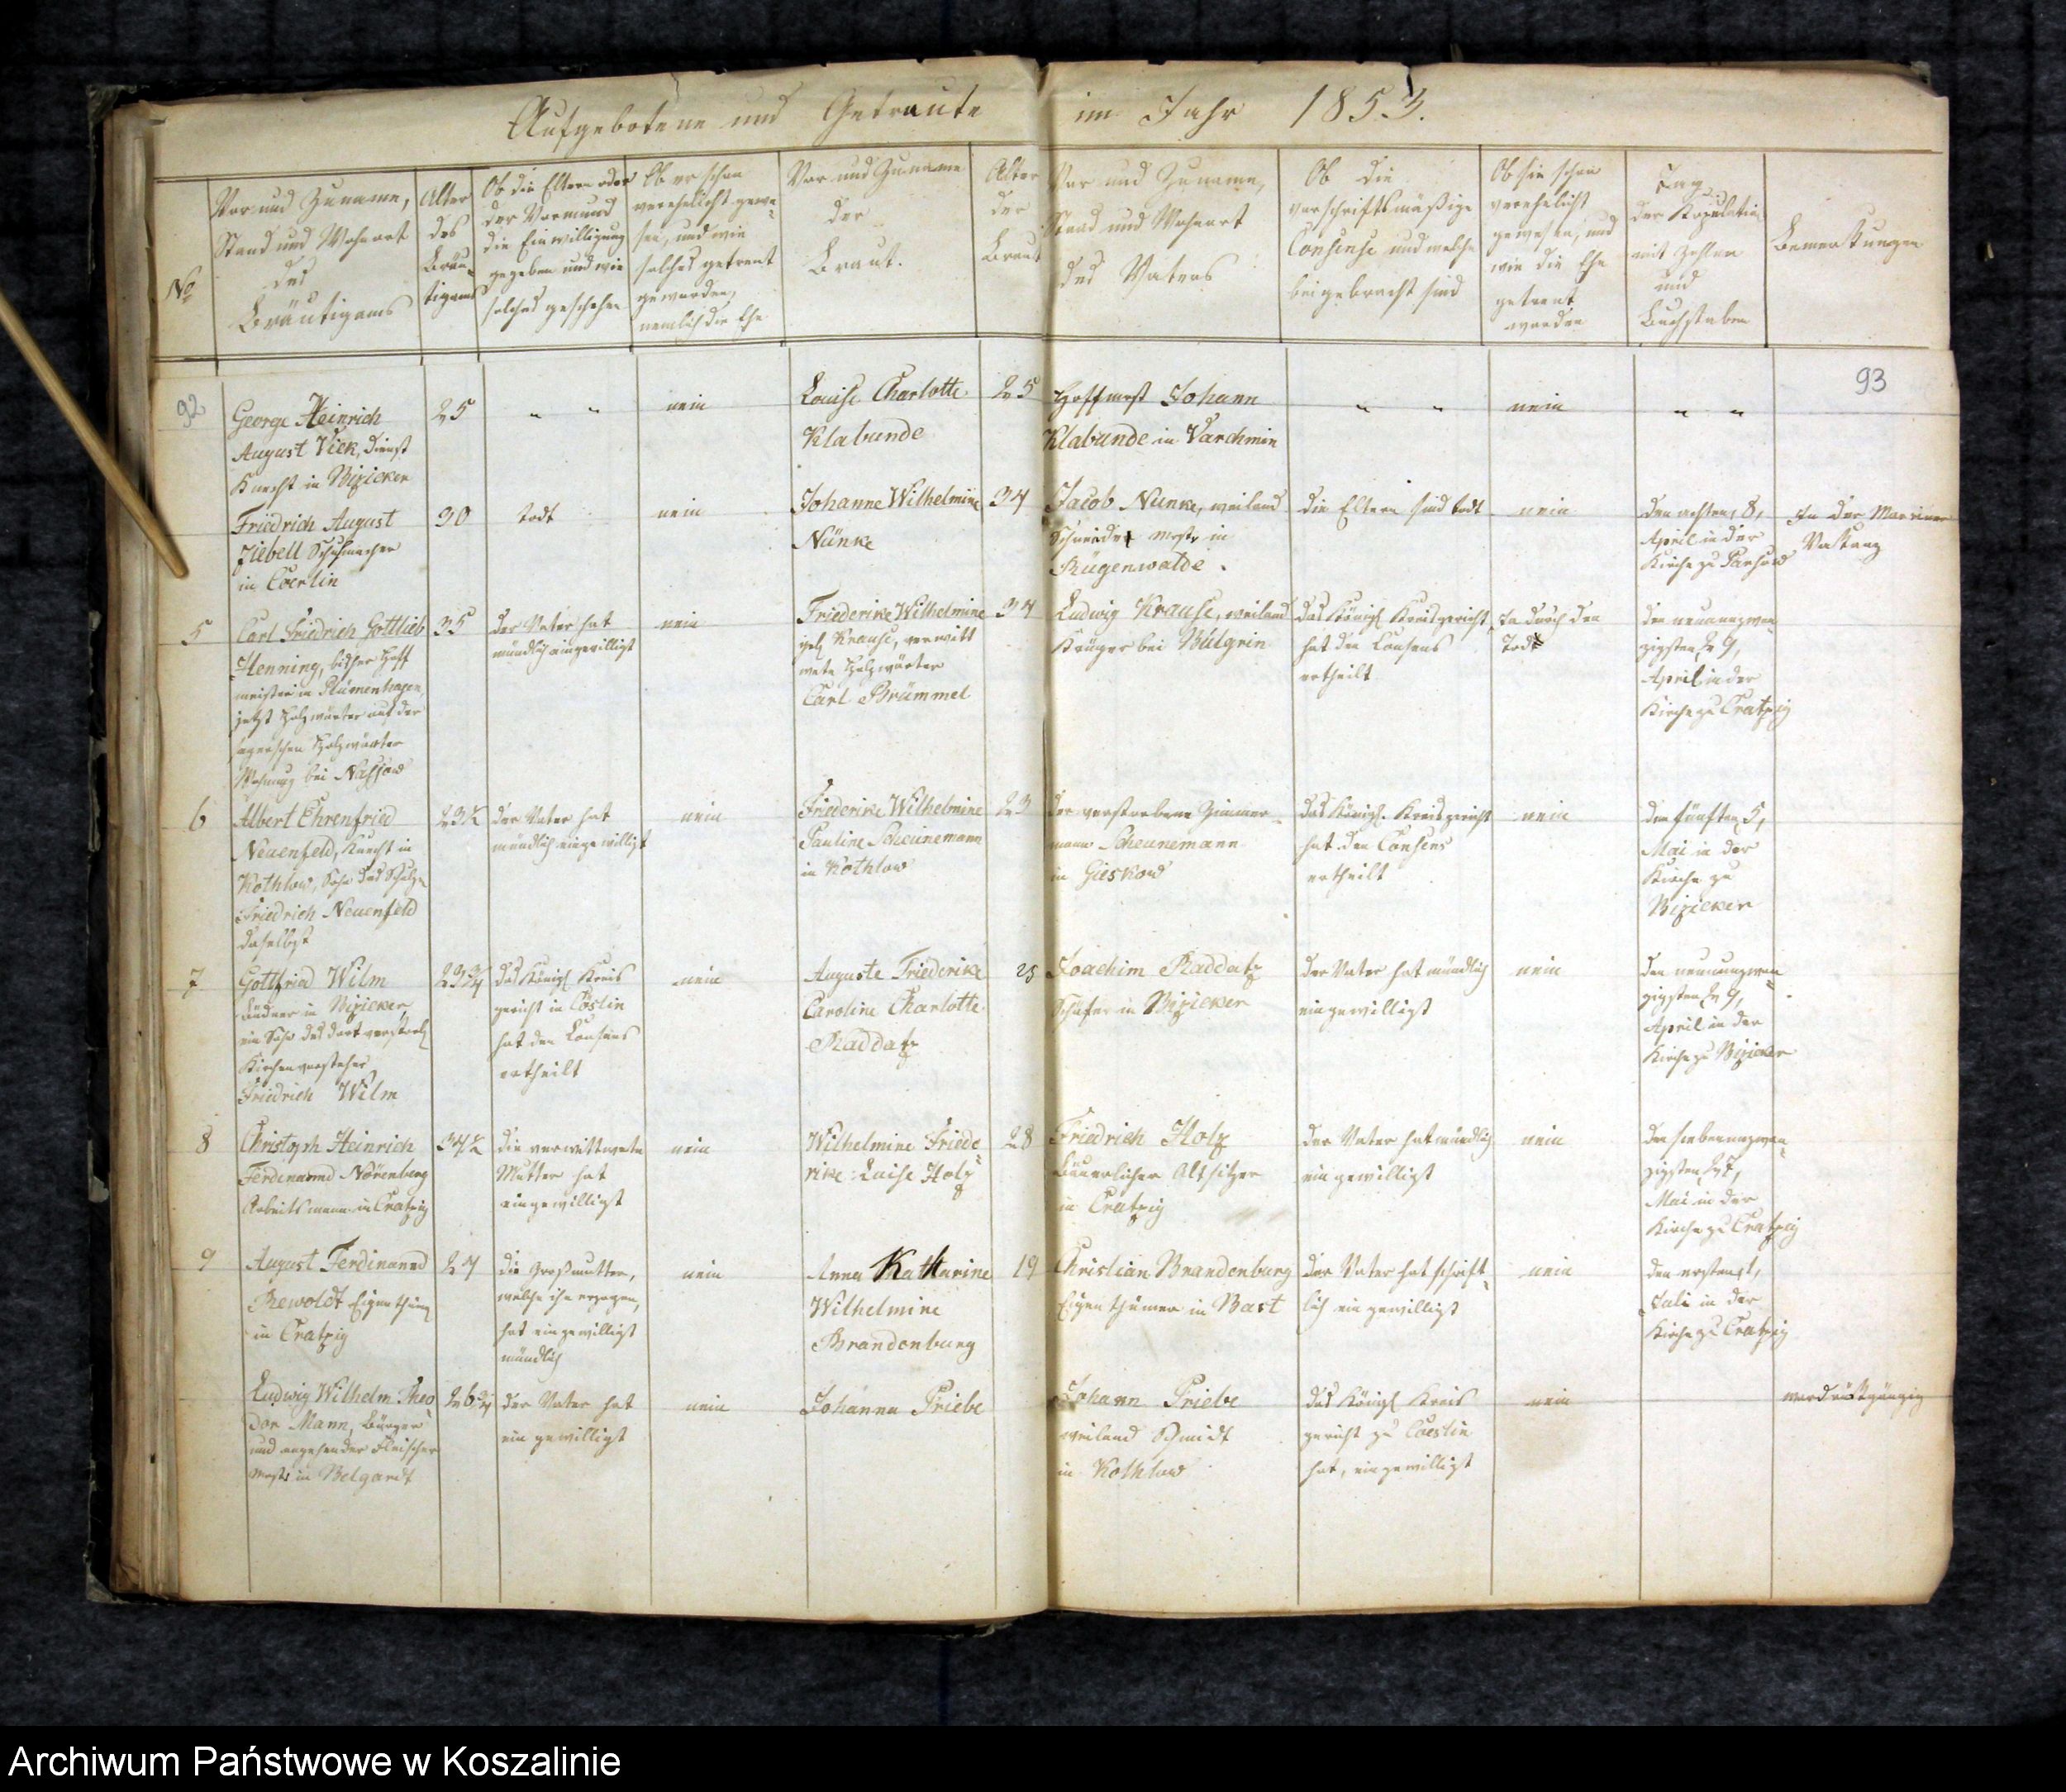 Aufgebotene und Getraute im Jahr 1853.
No
Vor und Zuname,
Stand und Wohnort
des
Bräutigams
Alter
des
Bräu-
tigams
Ob die Eltern oder
der Vormund
die Einwilligung
gegeben und wie
solches geschehen
Ob er schon
verehelicht gewe-
sen, und wie
solches getrent
geworden,
nemlich die Ehe
Vor und Zuname
der
Braut.
Alter
der
Braut
Vor und Zuname,
Stand und Wohnort
des Vaters
Ob die
vorschriftsmäßige
Consense und welche
beigebracht sind
Ob sie schon
verehelicht
gewesen, und
wie die Ehe
getrent
worden
Tag
der Kopulation
mit Zahlen
und
Buchstaben
Bemerkungen
92
93
George Heinrich
August Viek, Dienst
Knecht in Biziker
25
" "
nein
Louise Charlotte
Klabunde
25
Hoffmstr Johann
Klabunde in Varchmin
" "
nein
" "
Friedrich August
Ziebell Schuhmacher
in Coerlin
30
todt
nein
Johanne Wilhelmine
Nünke
34
Jacob Nünke, weiland
Schneider mstr in
Rügenwalde.
die Eltern sind todt
nein
den achten, 8,
April in der
Kirche zu Parsow
In der
5
Carl Friedrich Gottlieb
Henning, bisher Hoff
meister in Blumenhagen,
jetzt Holzwärter auf der
Holzwärter
Wohnung bei Nassow
35
der Vater hat
mündlich eingewilligt
nein
Friederike Wilhelmine
geb Krause, verwitt
wete Holzwärter
Carl Brümmel
34
Ludwig Krause, weiland
Krüger bei Bulgrin
das Königl Kreisgericht
hat den Consens
ertheilt
Ja durch den
Tod
den neunundzwan-
zigsten, 29,
April in der
Kirche zu Cratzig
6
Albert Ehrenfried
Neuenfeld, Knecht in
Kothlow, Sohn des Schulzen
Friedrich Neuenfeld
daselbst
23½
der Vater hat
mündlich eingewilligt
nein
Friederike Wilhelmine
Pauline Scheunemann
in Kothlow
23
der verstorbene Zimmer-
mann Scheunemann
in Gieskow
das Königl. Kreisgericht
hat den Consens
ertheilt
nein
den fünften, 5,
Mai in der
Kirche zu
Biziker
7
Gottfried Wilm
Büdner in Biziker,
ein Sohn des dort verstorb
Kirchenvorsteher
Friedrich Wilm
23¾
das Königl Kreis
gericht in Cöslin
hat den Consens
ertheilt
nein
Auguste Friederike
Caroline Charlotte
Raddatz
25
Joachim Raddatz
Schäfer in Biziker
der Vater hat mündlich
eingewilligt
nein
den neunundzwan-
zigsten, 29,
April in der
Kirche zu Biziker
8
Christoph Heinrich
Ferdinannd Nörenberg
Arbeitsmann in Cratzig
34½
die verwittwete
Mutter hat
eingewilligt
nein
Wilhelmine Friede-
rike Luise Holz
28
Friedrich Holz
Bäuerlicher Altsitzer
in Cratzig
der Vater hat mündlich
eingewilligt
nein
den siebenundzwan-
zigsten, 27,
Mai in der
Kirche zu Cratzig
9
August Ferdinannd
Rewoldt Eigenthüm
in Cratzig
24
die Großmutter,
welche ihn erzogen,
hat eingewilligt
mündlich
nein
Anna Katharine
Wilhelmine
Brandenburg
19
Christian Brandenburg
Eigenthümer in Bast
der Vater hat schrift-
lich eingewilligt
nein
den ersten, 1,
Juli in der
Kirche zu Cratzig
Ludwig Wilhelm Theo
dor Mann, Bürger
und angehender Fleischer
mstr in Belgardt
26¾
der Vater hat
eingewilligt
nein
Johanna Priebe
Johann Priebe
weiland Schmidt
in Kothlow
das Königl Kreis
gericht zu Coeslin
hat, eingewilligt
nein
ward rückgängig
Archiwum Państwowe w Koszalinie